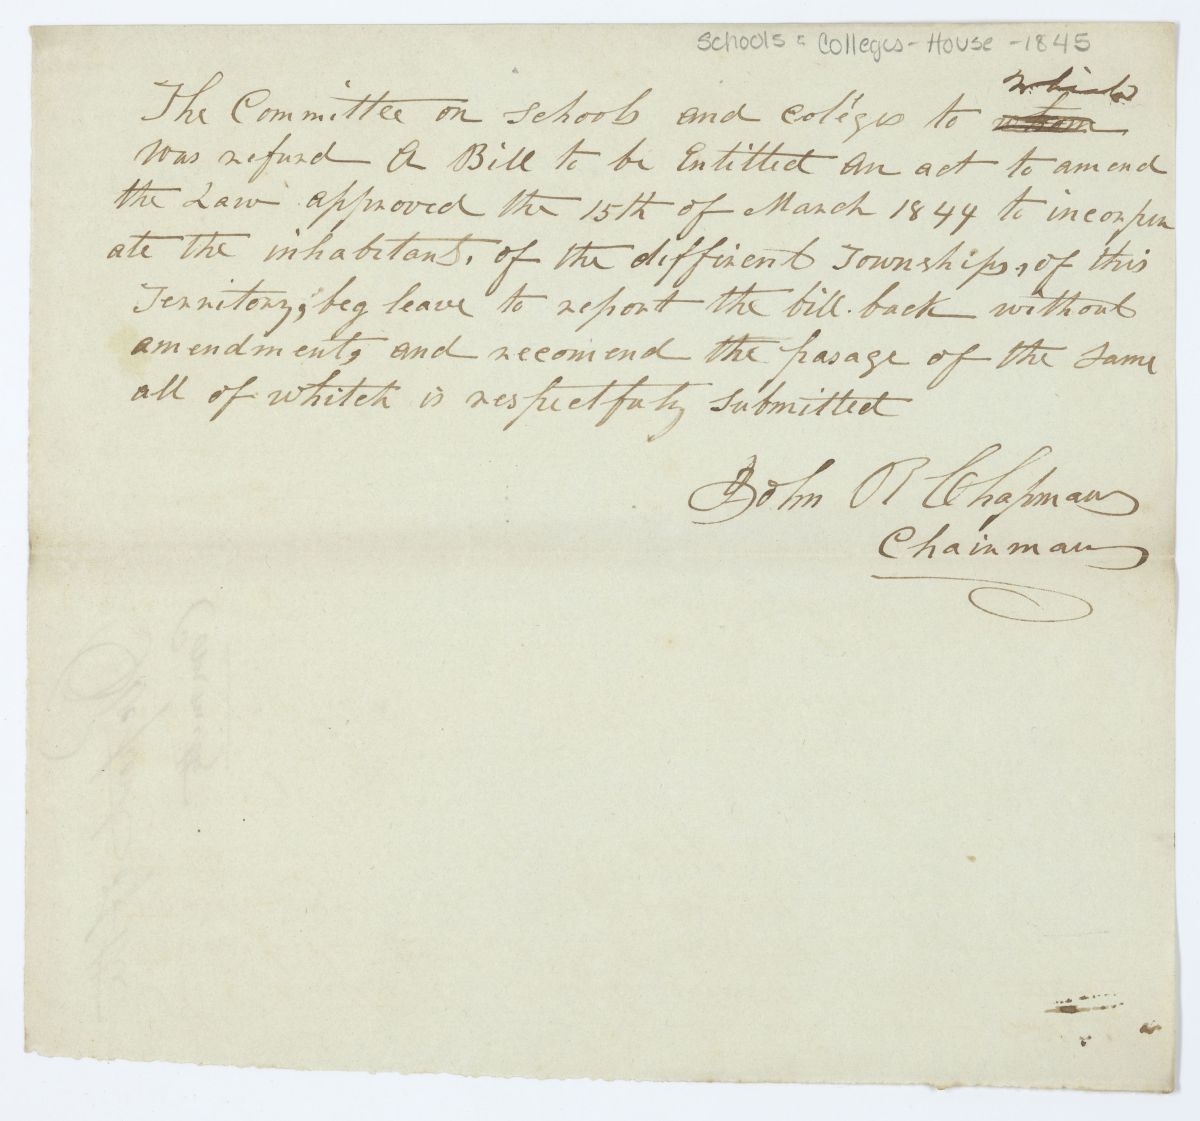 Schools & Colleges - House - 1845
which
The Committee on schools and coleges to whom
Was refured A Bill to be Entitled An act to amend
the Law approved the 15th of March 1844 to incorpor
ate the inhabitants, of the diffirent Townships, of this
Territory; beg leave to report the bill back without
amendment, and recomend the pasage of the same
all of whitch is respectfuly submitted
John R Chapman
Chairman